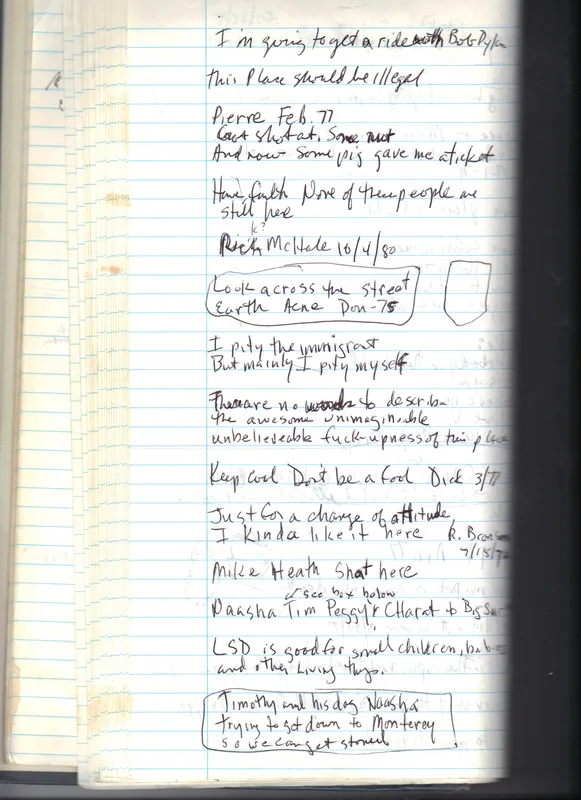 I'm going to get a ride with Bob Dylan
this Place should be illegal
Pierre Feb. 77
Got shot at. Some nut
And now Some pig gave me a ticket
Have faith None of these people are
still here
k?
McHale 10/4/80
Look across the street
Earth Acne Don-75
I pity the immigrant
But mainly I pity myself
There are no words to describe
the awesome unimaginable
unbelieveable fuck-upness of this place
Keep Cool Don't be a Fool Dick 3/77
Just for a change of attitude,
I Kinda like it here R. Bronson
7/15/72
Mike Heath Shat here
see box below
Naasha Tim Peggy & CHarat to Big Sur
LSD is good for small children, babies
and other Living things.
Timothy and his dog Naasha
trying to get down to Monterey
so we can get stoned